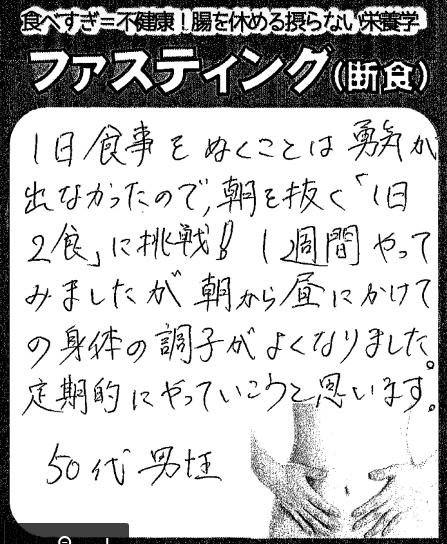 食べすぎ＝不健康！腸を休める摂らない栄養学
ファスティング(断食)
1日食事をぬくことは勇気が
出なかったので、朝を抜く「1日
2食」に挑戦!! 1週間やって
みましたが朝から昼にかけて
の身体の調子がよくなりました。
定期的にやっていこうと思います。
50代 男性